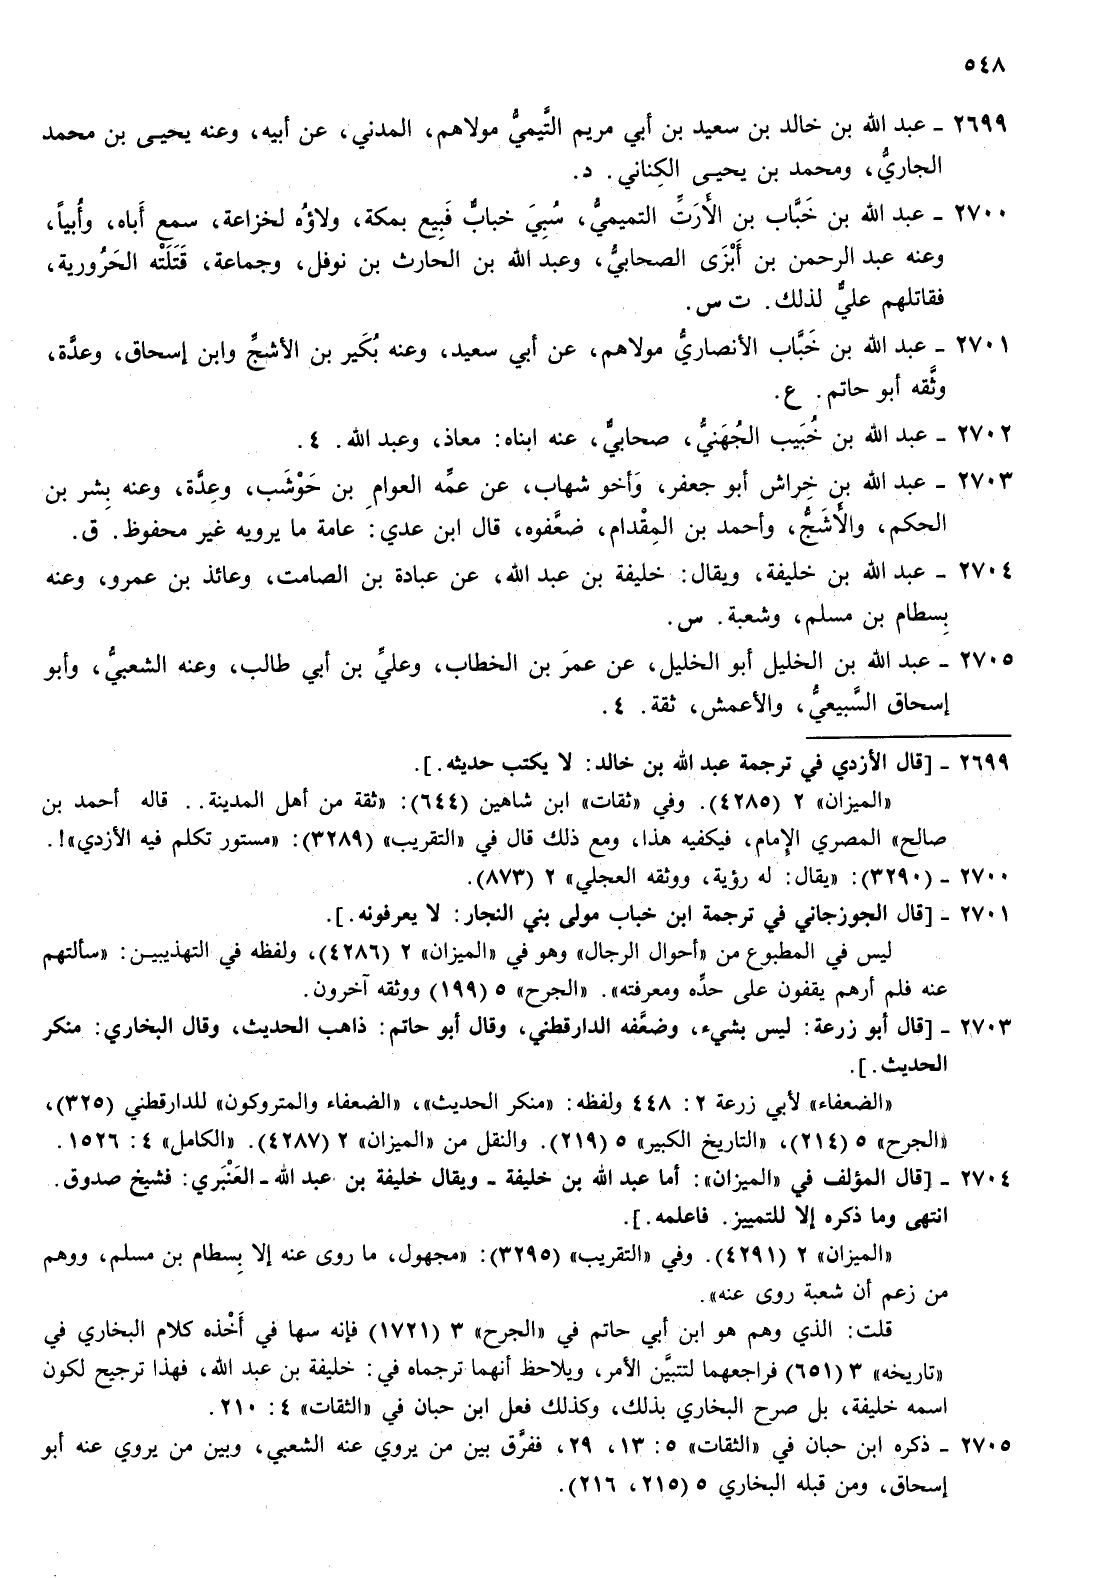 ٥٤٨
٢٦٩٩ ـ عبد الله بن خالد بن سعيد بن أبي مريم التَّيميُّ مولاهم، المدني، عن أبيه، وعنه يحيى بن محمد
الجاريُّ، ومحمد بن يحيى الكِناني. د.
٢٧٠٠ ـ عبد الله بن خَبَّاب بن الأَرَتِّ التميميُّ، سُبِيَ خبابٌ فَبِيع بمكة، ولاؤه لخزاعة، سمع أَباه، وأُبياً،
وعنه عبد الرحمن بن أَبْزَى الصحابيُّ، وعبد الله بن الحارث بن نوفل، وجماعة، قَتَلَتْه الحَرُورية،
فقاتلهم عليٌّ لذلك. ت س.
٢٧٠١ ـ عبد الله بن خَبَّاب الأنصاريُّ مولاهم، عن أبي سعيد، وعنه بُكَير بن الأشجِّ وابن إسحاق، وعدَّة،
وثَّقه أبو حاتم. ع.
٢٧٠٢ ـ عبد الله بن خُبَيب الجُهَنيُّ، صحابيٌّ، عنه ابناه: معاذ، وعبد الله. ٤.
٢٧٠٣ ـ عبد الله بن خِراش أبو جعفر، وَأخو شهاب، عن عمِّه العوامِ بن حَوْشَب، وعِدَّة، وعنه بِشر بن
الحكم، والأَشَجُّ، وأحمد بن المِقْدام، ضعَّفوه، قال ابن عدي: عامة ما يرويه غير محفوظ. ق.
٢٧٠٤ ـ عبد الله بن خليفة، ويقال: خليفة بن عبد الله، عن عبادة بن الصامت، وعائذ بن عمرو، وعنه
بِسطام بن مسلم، وشعبة. س.
٢٧٠٥ ـ عبد الله بن الخليل أبو الخليل، عن عمرَ بن الخطاب، وعليِّ بن أبي طالب، وعنه الشعبيُّ، وأبو
إسحاق السَّبيعيُّ، والأعمش، ثقة. ٤.
٢٦٩٩ ـ [قال الأزدي في ترجمة عبد الله بن خالد: لا يكتب حديثه.].
«الميزان» ٢ (٤٢٨٥). وفي «ثقات» ابن شاهين (٦٤٤): «ثقة من أهل المدينة.. قاله أحمد بن
صالح» المصري الإمام، فيكفيه هذا، ومع ذلك قال في «التقريب» (٣٢٨٩): «مستور تكلم فيه الأزدي»!.
٢٧٠٠ ـ (٣٢٩٠): «يقال: له رؤية، ووثقه العجلي» ٢ (٨٧٣).
٢٧٠١ ـ [قال الجوزجاني في ترجمة ابن خباب مولى بني النجار: لا يعرفونه.].
ليس في المطبوع من «أحوال الرجال» وهو في «الميزان» ٢ (٤٢٨٦)، ولفظه في التهذيبين: «سألتهم
عنه فلم أرهم يقفون على حدِّه ومعرفته». «الجرح» ٥ (١٩٩) ووثقه آخرون.
٢٧٠٣ ـ [قال أبو زرعة: ليس بشيء، وضعَّفه الدارقطني، وقال أبو حاتم: ذاهب الحديث، وقال البخاري: منكر
الحديث.].
«الضعفاء» لأبي زرعة ٢: ٤٤٨ ولفظه: «منكر الحديث»، «الضعفاء والمتروكون» للدارقطني (٣٢٥)،
«الجرح» ٥ (٢١٤)، «التاريخ الكبير» ٥ (٢١٩). والنقل من «الميزان» ٢ (٤٢٨٧). «الكامل» ٤: ١٥٢٦.
٢٧٠٤ ـ [قال المؤلف في «الميزان»: أما عبد الله بن خليفة ـ ويقال خليفة بن عبد الله ـ العَنْبَري: فشيخ صدوق.
انتهى وما ذكره إلا للتمييز. فاعلمه.].
«الميزان» ٢ (٤٢٩١). وفي «التقريب» (٣٢٩٥): «مجهول، ما روى عنه إلا بِسطام بن مسلم، ووهم
من زعم أن شعبة روى عنه».
قلت: الذي وهم هو ابن أبي حاتم في «الجرح» ٣ (١٧٢١) فإنه سها في أَخْذه كلام البخاري في
«تاريخه» ٣ (٦٥١) فراجعهما لتتبيَّن الأمر، ويلاحظ أنهما ترجماه في: خليفة بن عبد الله، فهذا ترجيح لكون
اسمه خليفة، بل صرح البخاري بذلك، وكذلك فعل ابن حبان في «الثقات» ٤: ٢١٠.
٢٧٠٥ ـ ذكره ابن حبان في «الثقات» ٥: ١٣، ٢٩، ففرَّق بين من يروي عنه الشعبي، وبين من يروي عنه أبو
إسحاق، ومن قبله البخاري ٥ (٢١٥، ٢١٦).